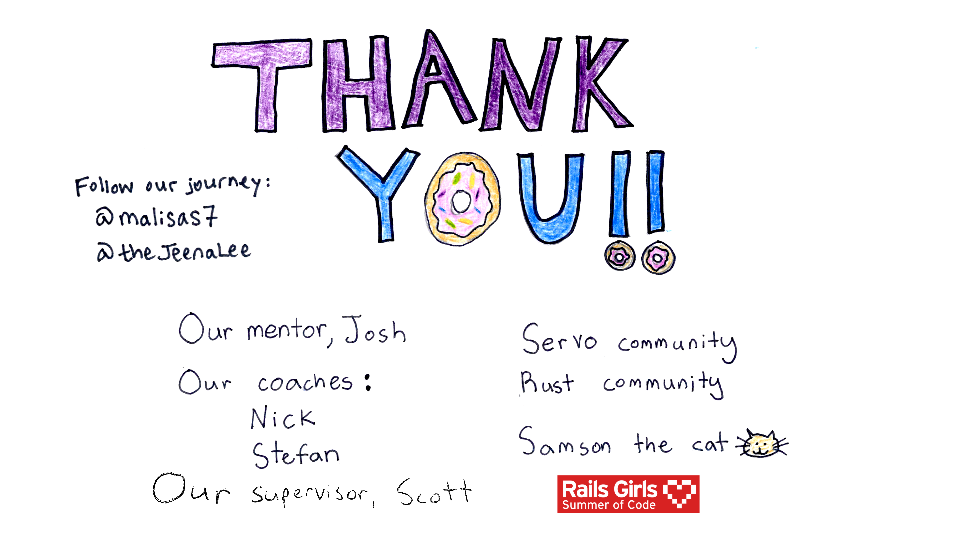 THANK
YOU!!
Follow our journey:
@malisas7
@theJeenaLee
Our mentor, Josh
Our coaches:
Nick
Stefan
Our supervisor, Scott
Servo community
Rust community
Samson the cat
Rails Girls
Summer of Code